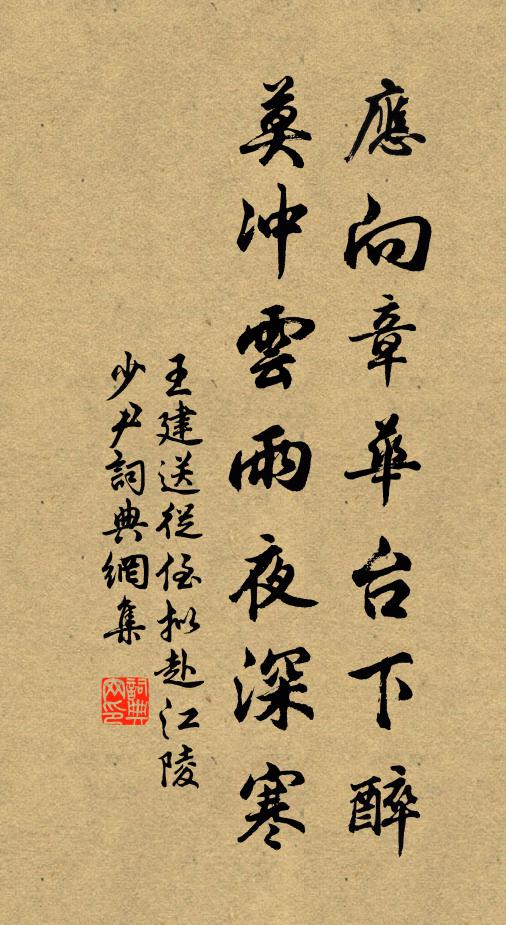 應向章華台下醉
莫沖雲雨夜深寒
王建送從侄拟赴江陵
少尹詞典網集
詞典
网印